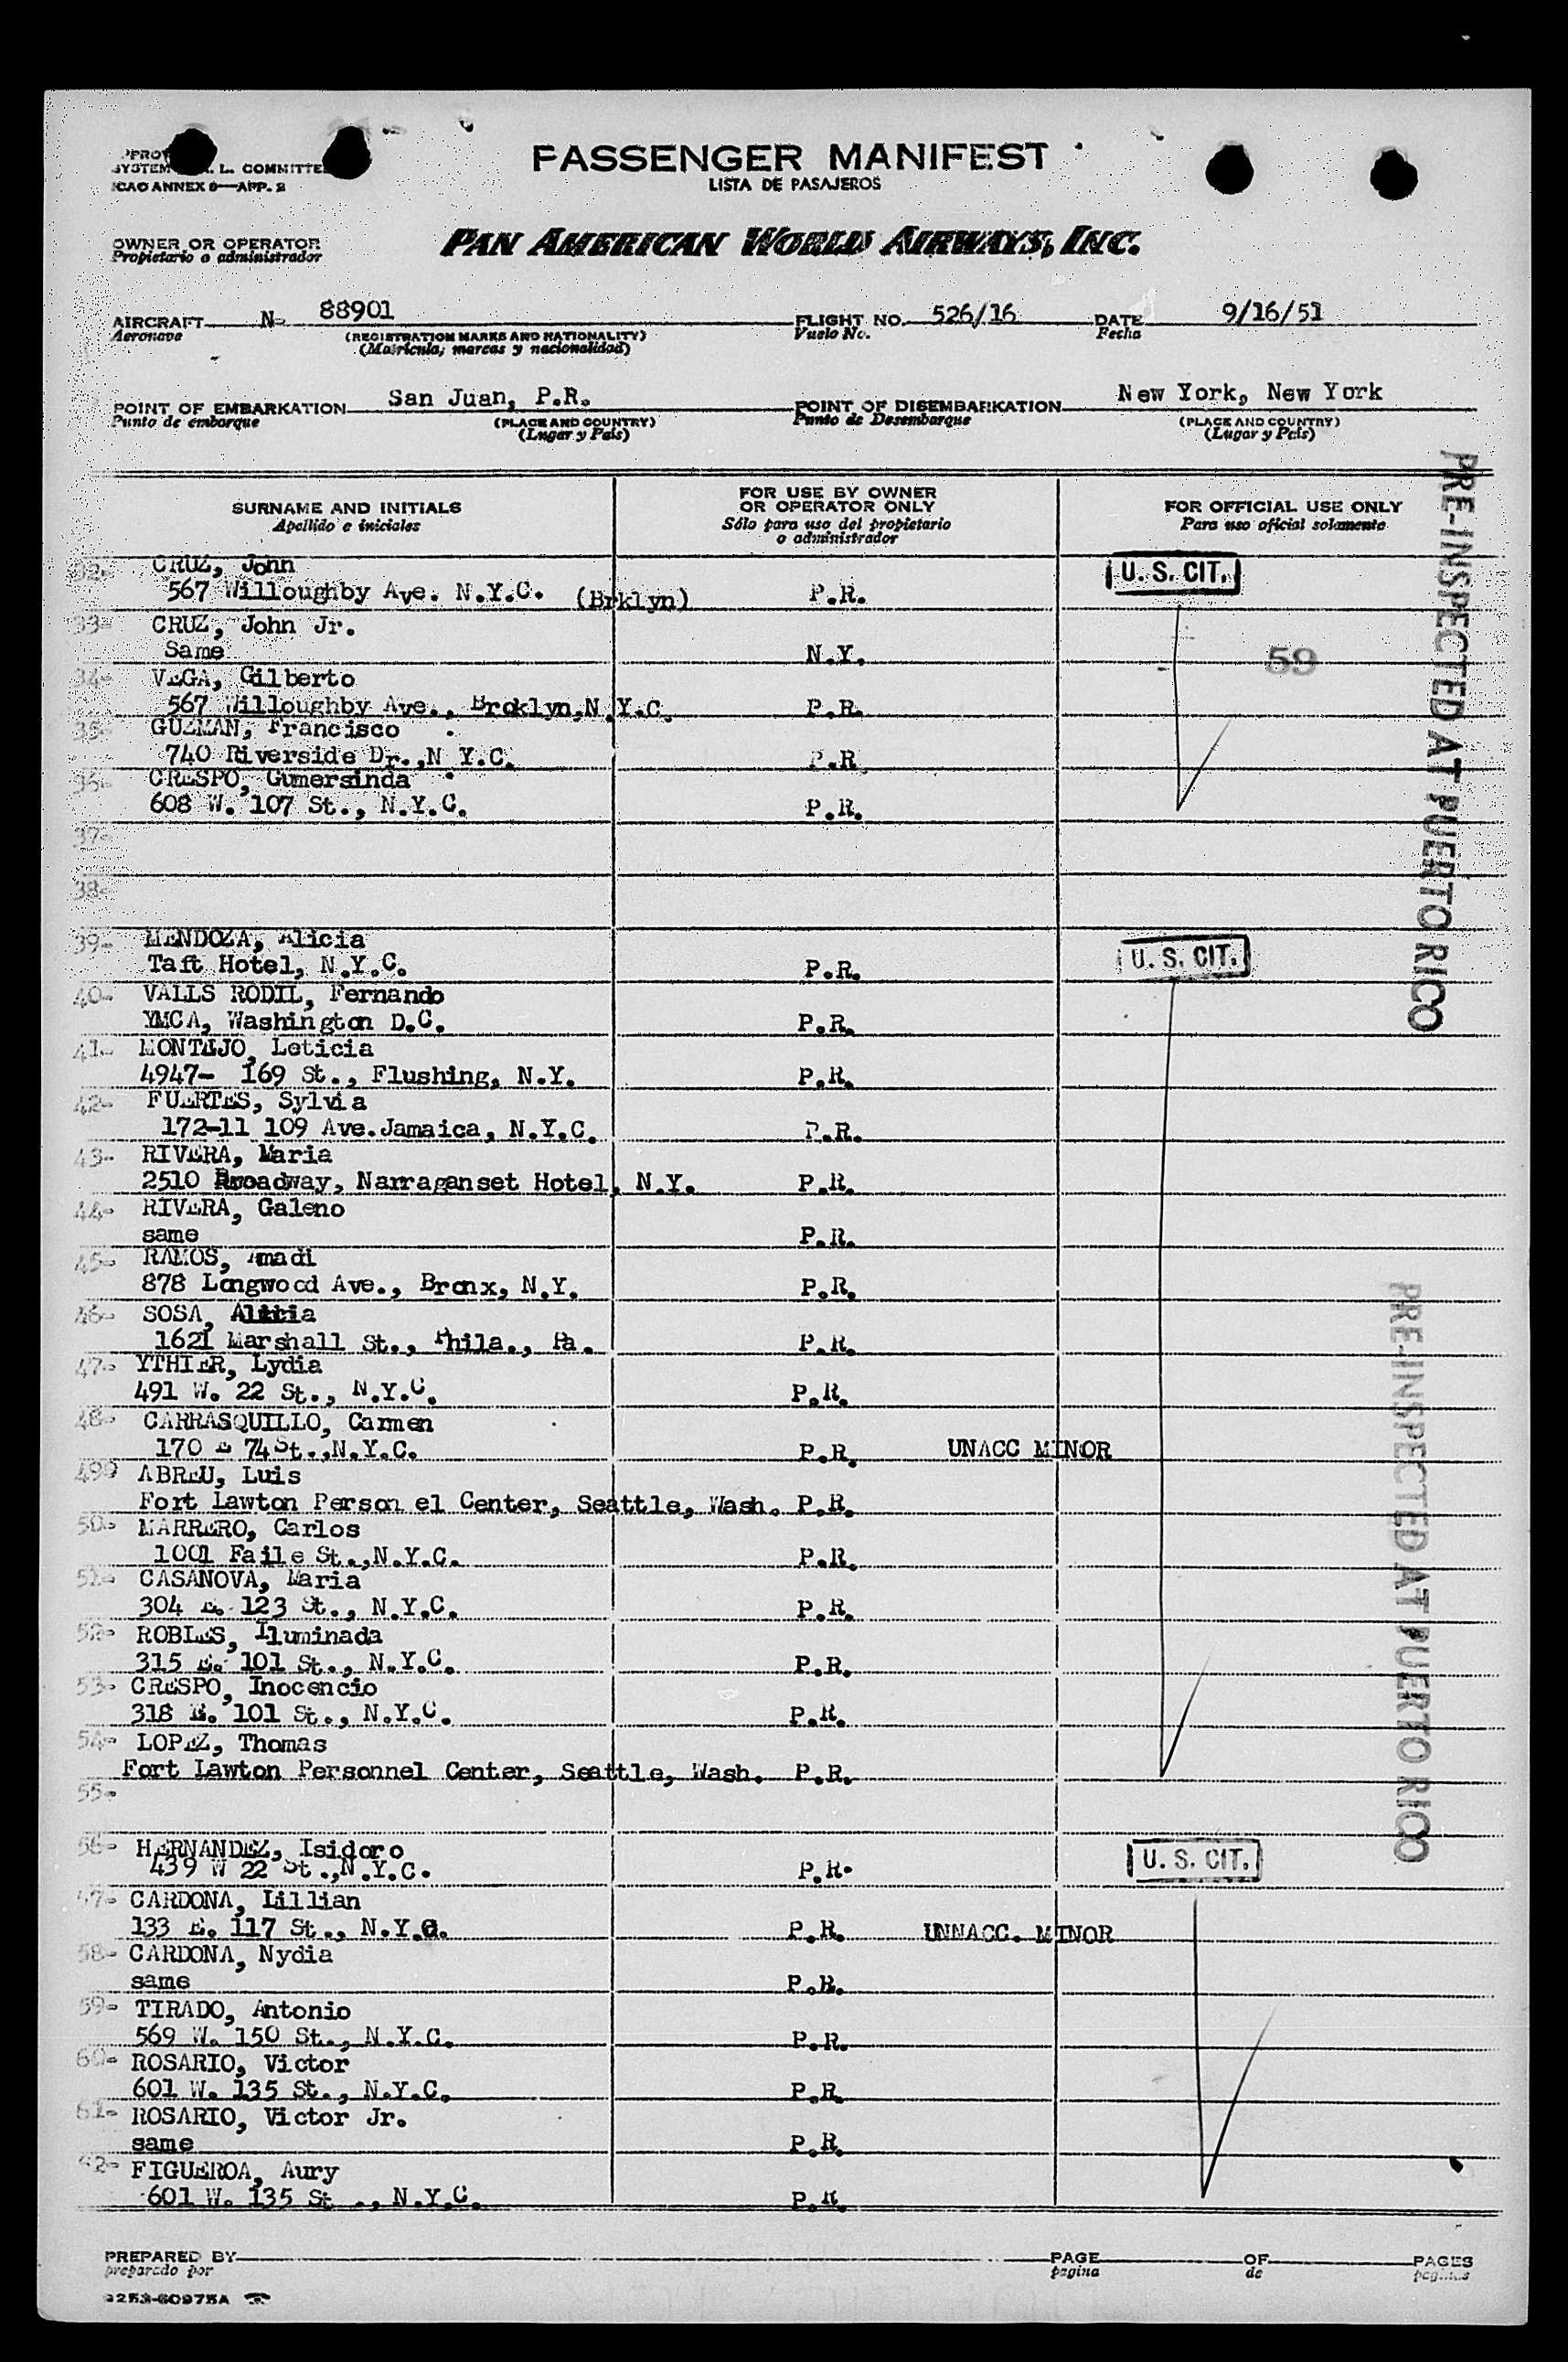 PASSENGER MANIFEST
LISTA DE PASAJEROS
L. COMMITTEE
ICAO ANNEX 9—APP. 2
OWNER OR OPERATOR
Propietario o administrador
PAN AMERICAN WORLD AIRWAYS, INC.
AIRCRAFT N- 88901 FLIGHT NO. 526/16 DATE 9/16/51
Aeronave (REGISTRATION MARKS AND NATIONALITY) Vuelo No. Fecha
(Matrícula, marcas y nacionalidad)
POINT OF EMBARKATION San Juan, P.R. POINT OF DISEMBARKATION New York, New York
Punto de embarque (PLACE AND COUNTRY) Punto de Desembarque (PLACE AND COUNTRY)
(Lugar y País) (Lugar y País)
SURNAME AND INITIALS FOR USE BY OWNER OR OPERATOR ONLY FOR OFFICIAL USE ONLY
Apellido e iniciales Sólo para uso del propietario o administrador Para uso oficial solamente
32- CRUZ, John U. S. CIT.
567 Willoughby Ave. N.Y.C. (Brklyn) P.R.
33- CRUZ, John Jr.
Same N.Y. 59
34- VEGA, Gilberto
567 Willoughby Ave., Brcklyn,N.Y.C. P.R.
35- GUZMAN, Francisco
740 Riverside Dr.,N Y.C. P.R
36- CRESPO, Gumersinda
608 W. 107 St., N.Y.C. P.R.
37-
38-
39- MENDOZA, Alicia U. S. CIT.
Taft Hotel, N.Y.C. P.R.
40- VALLS RODIL, Fernando
YMCA, Washington D.C. P.R.
41- MONTAJO, Leticia
4947- 169 St., Flushing, N.Y. P.R.
42- FUERTES, Sylvia
172-11 109 Ave.Jamaica, N.Y.C. P.R.
43- RIVERA, Maria
2510 Broadway, Narraganset Hotel, N.Y. P.R.
44- RIVERA, Galeno
same P.R.
45- RAMOS, Amadi
878 Longwood Ave., Bronx, N.Y. P.R.
46- SOSA, Alicia
1621 Marshall St., Phila., Pa. P.R.
47- YTHIER, Lydia
491 W. 22 St., N.Y.C. P.R.
48- CARRASQUILLO, Carmen
170 E 74 St.,N.Y.C. P.R. UNACC MINOR
49- ABREU, Luis
Fort Lawton Person el Center, Seattle, Wash. P.R.
50- MARRERO, Carlos
1001 Faile St.,N.Y.C. P.R.
51- CASANOVA, Maria
304 E. 123 St., N.Y.C. P.R.
52- ROBLES, Iluminada
315 E. 101 St., N.Y.C. P.R.
53- CRESPO, Inocencio
318 E. 101 St., N.Y.C. P.R.
54- LOPEZ, Thomas
Fort Lawton Personnel Center, Seattle, Wash. P.R.
55-
56- HERNANDEZ, Isidoro U. S. CIT.
439 W 22 St.,N.Y.C. P.R.
57- CARDONA, Lillian
133 E. 117 St., N.Y.C. P.R. UNNACC. MINOR
58- CARDONA, Nydia
same P.R.
59- TIRADO, Antonio
569 W. 150 St., N.Y.C. P.R.
60- ROSARIO, Victor
601 W. 135 St., N.Y.C. P.R.
61- ROSARIO, Victor Jr.
same P.R.
62- FIGUEROA, Aury
601 W. 135 St ., N.Y.C. P.R.
PRE-INSPECTED AT PUERTO RICO
PRE-INSPECTED AT PUERTO RICO
PREPARED BY PAGE OF PAGES
preparado por pagina de paginas